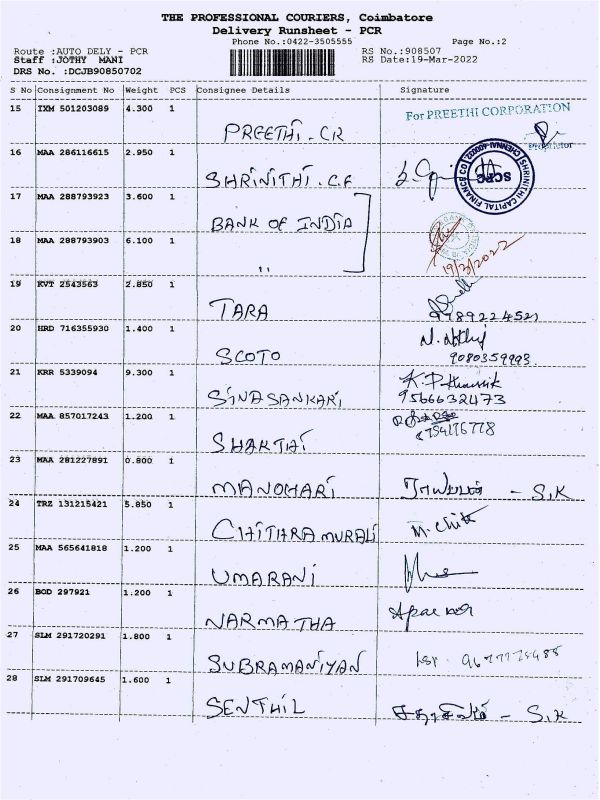 THE PROFESSIONAL COURIERS, Coimbatore
Delivery Runsheet - PCR
Phone No.:0422-3505555 Page No.:2
Route :AUTO DELY - PCR RS No.:908507
Staff :JOTHY MANI RS Date:19-Mar-2022
DRS No. :DCJB90850702
S No Consignment No Weight PCS Consignee Details Signature
15 IXM 501203089 4.300 1 PREETHI. CR For PREETHI CORPORATION
Proprietor
16 MAA 286116615 2.950 1 SHRINITHI. C.F SHRINITHI CAPITAL FINANCE CO SCFC
17 MAA 288793923 3.600 1 BANK OF INDIA
18 MAA 288793903 6.100 1 " 19/3/2022
19 KVT 2543563 2.850 1 TARA 9789224521
20 HRD 716355930 1.400 1 SCOTO 9080359993
21 KRR 5339094 9.300 1 SIVASANKARI 9566632473
22 MAA 857017243 1.200 1 SHAKTHI
23 MAA 281227891 0.800 1 MANOHARI - S.K
24 TRZ 131215421 5.850 1 CHITHRAMURALI M. Chitra
25 MAA 565641818 1.200 1 UMARANI
26 BOD 297921 1.200 1 NARMATHA
27 SLM 291720291 1.800 1 SUBRAMANIYAN
28 SLM 291709645 1.600 1 SENTHIL - S.K